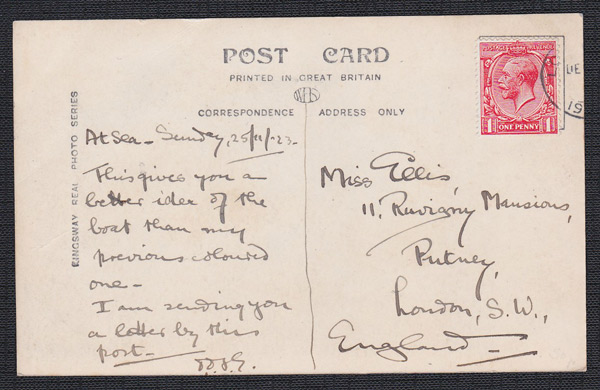 POST CARD
PRINTED IN GREAT BRITAIN
CORRESPONDENCE ADDRESS ONLY
KINGSWAY REAL PHOTO SERIES
At sea - Sunday, 25/11/23.
This gives you a
better ider of the
boat than my
previous coloured
one -
I am sending you
a letter by this
post -
Miss Ellis,
11, Ruvigny Mansions,
Putney,
London, S.W.,
England
POSTAGE REVENUE
1 ONE PENNY 1
19